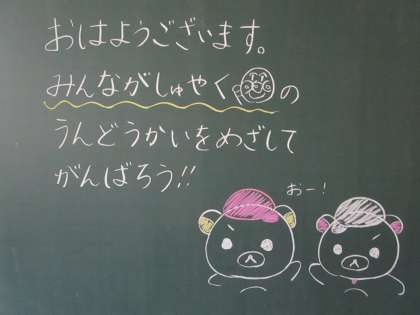 おはようございます。
みんながしゅやくの
うんどうかいをめざして
がんばろう!!
おー!